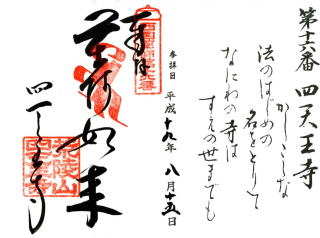 第十六番 四天王寺
かしこしな
法のはじめの
名をとりて
なにわの寺は
すえの世までも
参拝日 平成十九年 八月十五日
奉拝
薬師如来
四天王寺
荒陵山